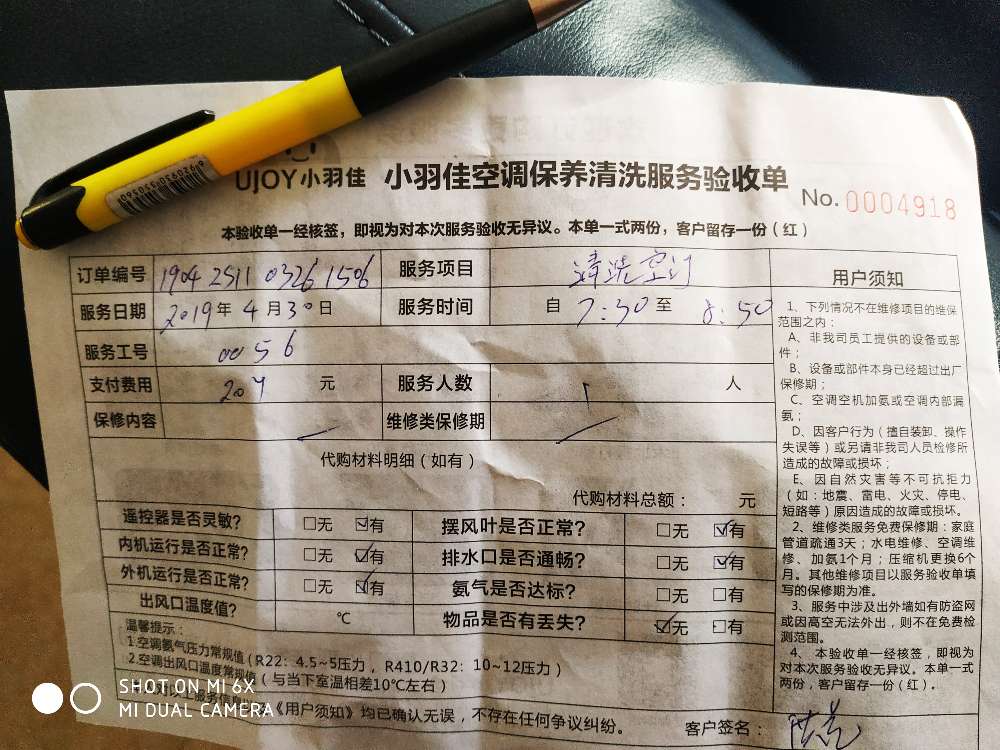 6920930550605
UJOY小羽佳 小羽佳空调保养清洗服务验收单
No. 0004918
本验收单一经核签，即视为对本次服务验收无异议。本单一式两份，客户留存一份（红）
订单编号 1904 2511 0326 1506 服务项目 清洗空调
服务日期 2019年4月30日 服务时间 自 7:30 至 8:50
服务工号 0056
支付费用 207 元 服务人数 1 人
保修内容 维修类保修期
代购材料明细（如有）
代购材料总额： 元
遥控器是否灵敏？ □无 ☑有 摆风叶是否正常？ □无 ☑有
内机运行是否正常？ □无 ☑有 排水口是否通畅？ □无 ☑有
外机运行是否正常？ □无 ☑有 氨气是否达标？ □无 □有
出风口温度值？ ℃ 物品是否有丢失？ ☑无 □有
温馨提示：
1.空调氨气压力常规值（R22：4.5~5压力，R410/R32：10~12压力）
2.空调出风口温度常规值（与当下室温相差10℃左右）
《用户须知》均已确认无误，不存在任何争议纠纷。
客户签名：
用户须知
1、下列情况不在维修项目的维保
范围之内：
A、非我司员工提供的设备或部
件；
B、设备或部件本身已经超过出厂
保修期；
C、空调空机加氨或空调内部漏
氨；
D、因客户行为（擅自装卸、操作
失误等）或另请非我司人员检修所
造成的故障或损坏；
E、因自然灾害等不可抗拒力
（如：地震、雷电、火灾、停电、
短路等）原因造成的故障或损坏。
2、维修类服务免费保修期：家庭
管道疏通3天；水电维修、空调维
修、加氨1个月；压缩机更换6个
月。其他维修项目以服务验收单填
写的保修期为准。
3、服务中涉及出外墙如有防盗网
或因高空无法外出，则不在免费检
测范围。
4、本验收单一经核签，即视为
对本次服务验收无异议。本单一式
两份，客户留存一份（红）。
SHOT ON MI 6X
MI DUAL CAMERA